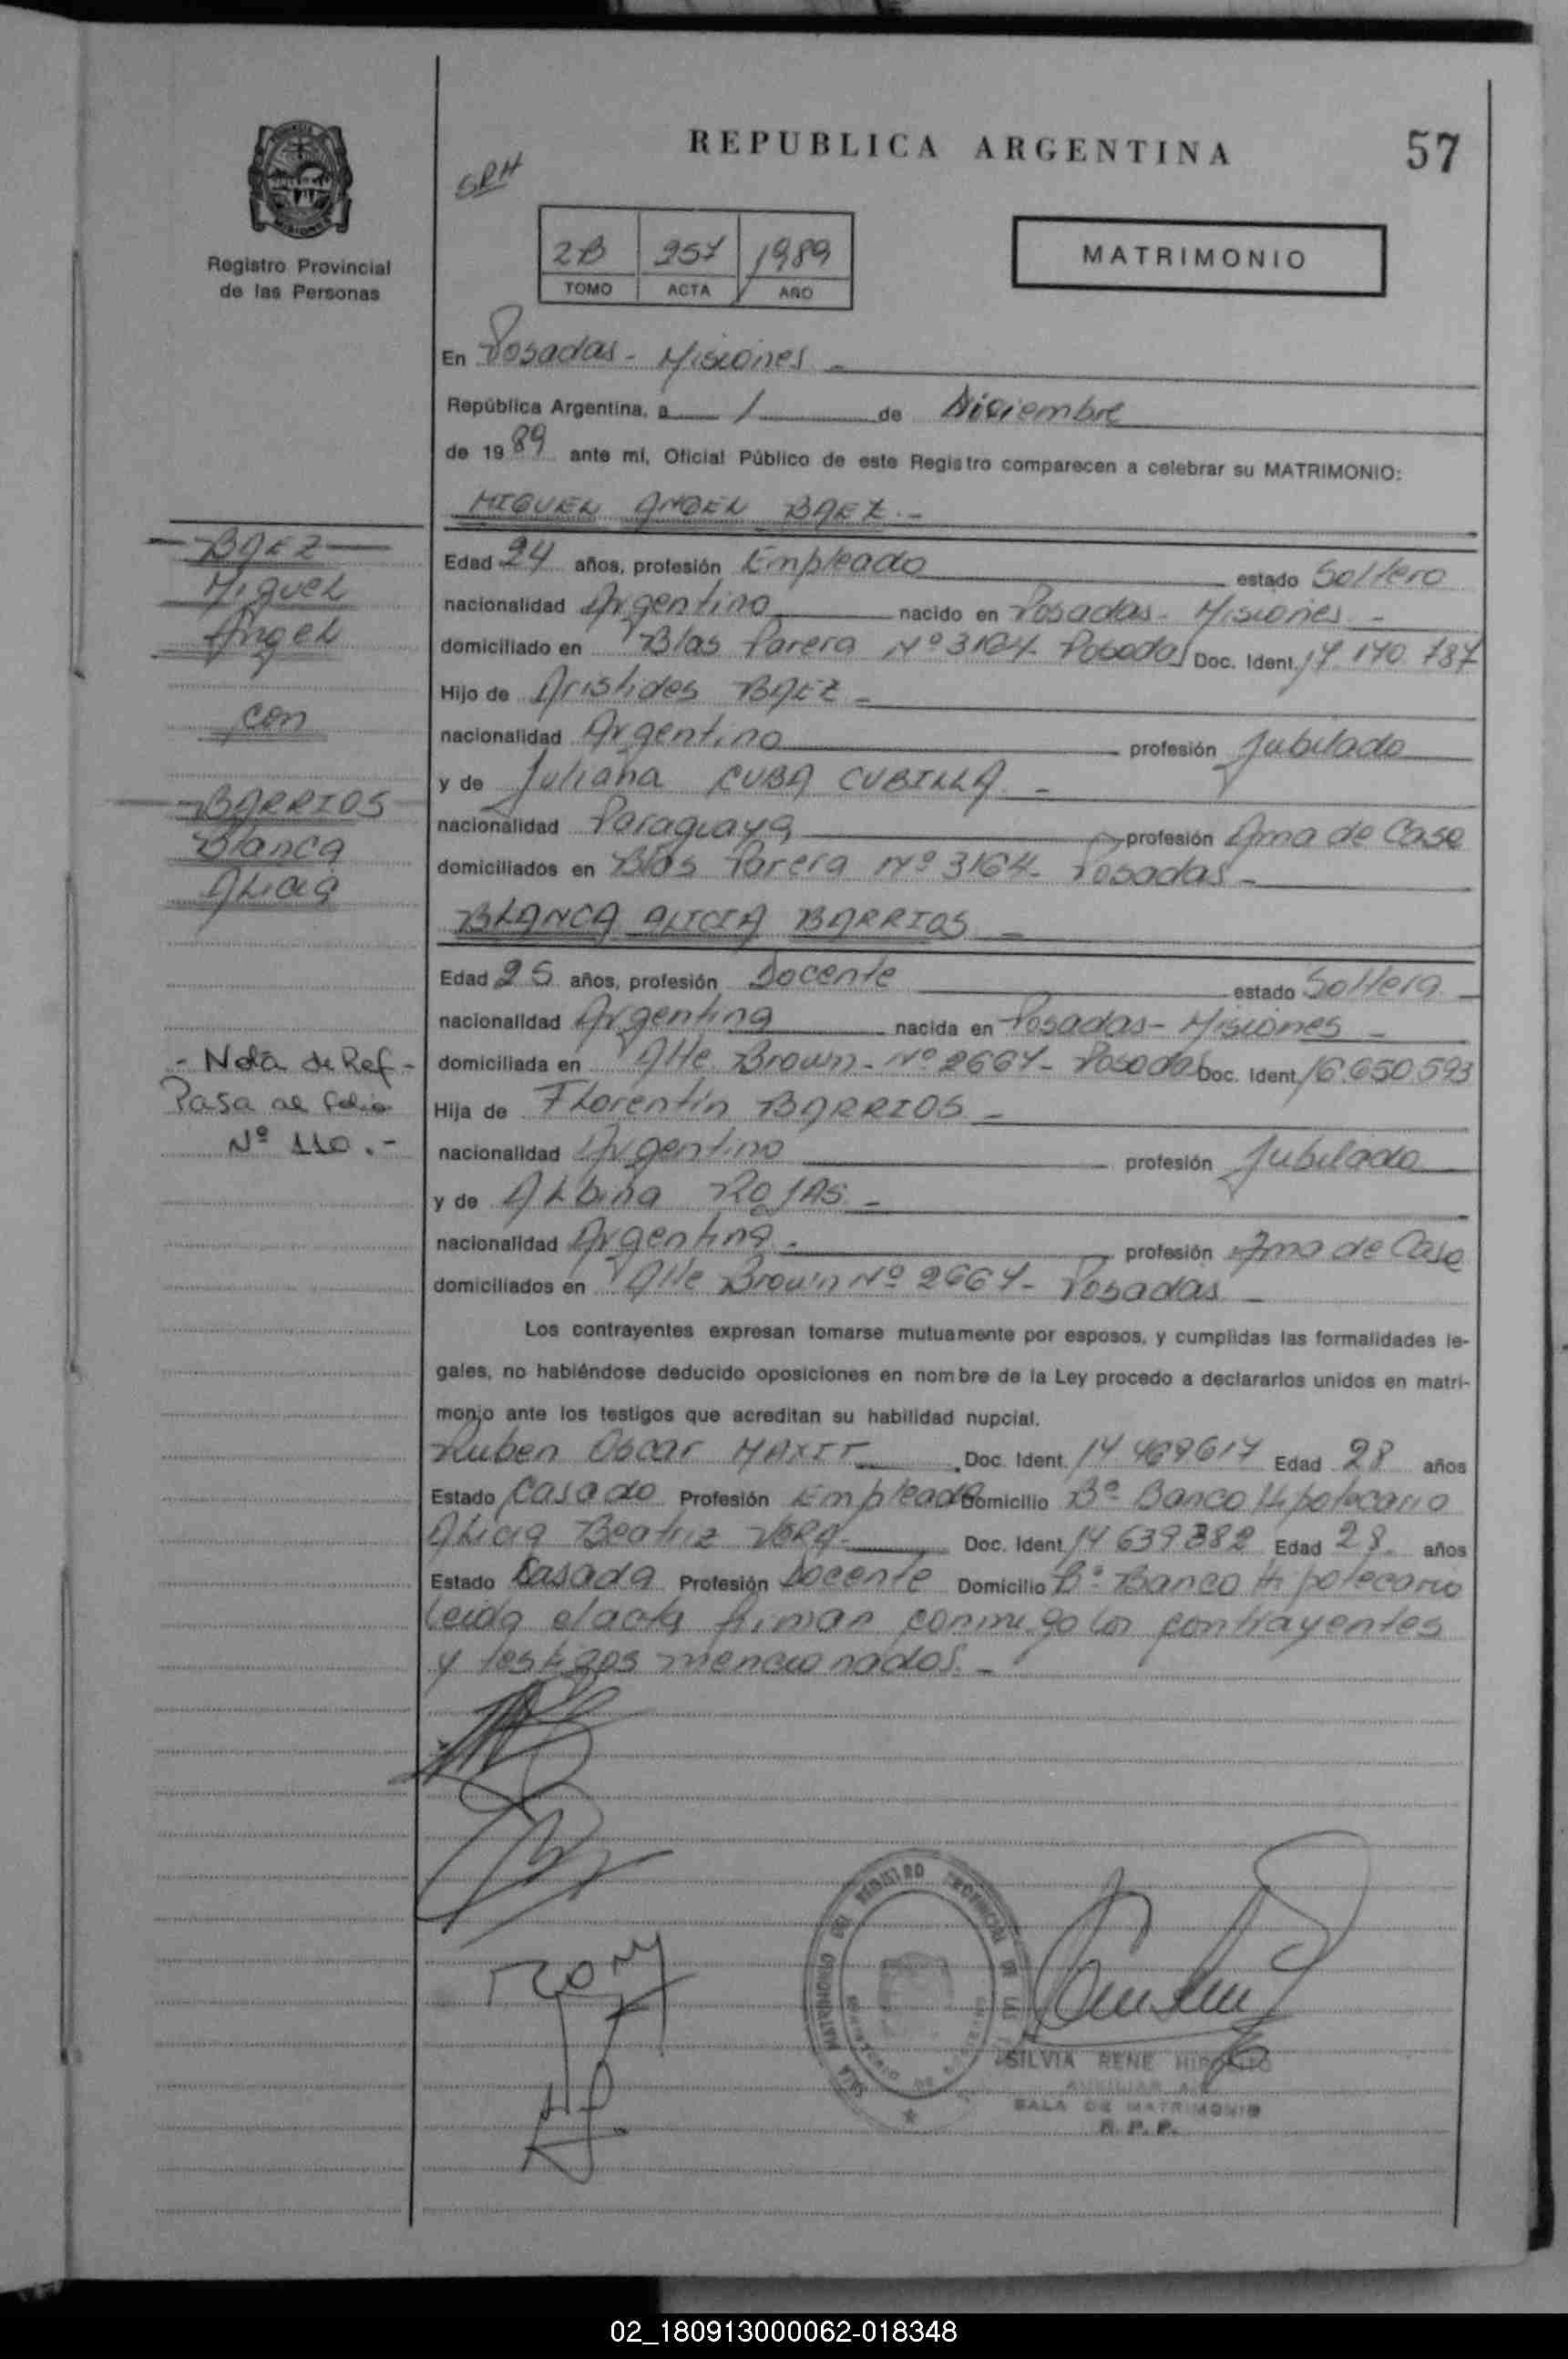 REPUBLICA ARGENTINA
57
SRH
Registro Provincial
de las Personas
2B 957 1989
TOMO ACTA AÑO
MATRIMONIO
En Posadas - Misiones -
República Argentina, a 1 de Diciembre
de 1989 ante mí, Oficial Público de este Registro comparecen a celebrar su MATRIMONIO:
MIGUEL ANGEL BAEZ.-
Edad 24 años, profesión Empleado estado Soltero
nacionalidad Argentino nacido en Posadas - Misiones -
domiciliado en Blas Parera Nº 3164 Posadas Doc. Ident. 17.170.787
Hijo de Aristides BAEZ -
nacionalidad Argentino profesión Jubilado
y de Juliana CUBA CUBILLA -
nacionalidad Paraguaya profesión Ama de Casa
domiciliados en Blas Parera Nº 3164- Posadas -
BLANCA ALICIA BARRIOS -
Edad 25 años, profesión Docente estado Soltera -
nacionalidad Argentina nacida en Posadas - Misiones -
domiciliada en Alte Brown - Nº 2667 - Posadas Doc. Ident. 16.650.593
Hija de Florentín BARRIOS -
nacionalidad Argentino profesión Jubilado
y de Albina ROJAS -
nacionalidad Argentina - profesión Ama de Casa
domiciliados en Alte Brown Nº 2667 - Posadas -
Los contrayentes expresan tomarse mutuamente por esposos, y cumplidas las formalidades le-
gales, no habiéndose deducido oposiciones en nombre de la Ley procedo a declararlos unidos en matri-
monio ante los testigos que acreditan su habilidad nupcial.
Ruben Oscar MAXIT Doc. Ident. 14 469617 Edad 28 años
Estado Casado Profesión Empleado Domicilio Bº Banco Hipotecario
Alicia Beatriz VERA- Doc. Ident. 14 639382 Edad 28 años
Estado Casada Profesión Docente Domicilio Bº Banco Hipotecario
Leida el acta firman conmigo los contrayentes
y testigos mencionados. -
- BAEZ -
Miguel
Angel
con
- BARRIOS
Blanca
Alicia
- Nota de Ref -
Pasa al folio
Nº 110.-
SILVIA RENE HIPOLITO
AUXILIAR
SALA DE MATRIMONIO
R. P. P.
02_180913000062-018348